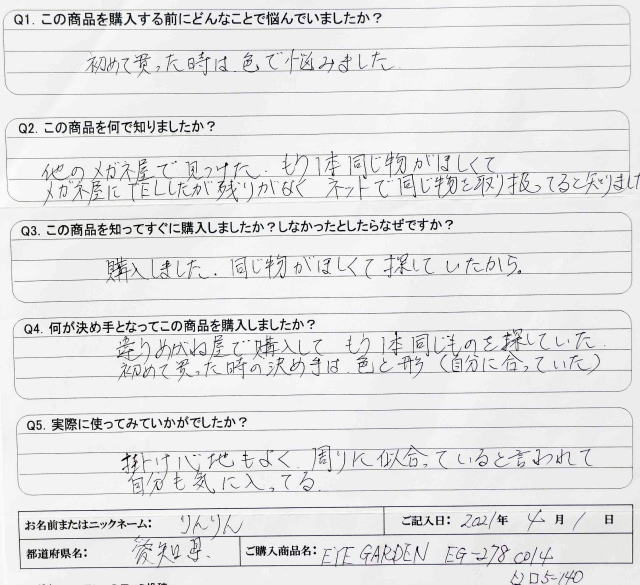 Q1. この商品を購入する前にどんなことで悩んでいましたか？
初めて買った時は.色で悩みました
Q2. この商品を何で知りましたか？
他のメガネ屋で見つけた. もう1本同じ物がほしくて
メガネ屋にTELしたが残りがなく ネットで同じ物を取り扱ってると知りました
Q3. この商品を知ってすぐに購入しましたか？しなかったとしたらなぜですか？
購入しました. 同じ物がほしくて探していたから。
Q4. 何が決め手となってこの商品を購入しましたか？
違うめがね屋で購入して もう1本同じものを探していた.
初めて買った時の決め手は.色と形(自分に合っていた)
Q5. 実際に使ってみていかがでしたか？
掛け心地もよく.周りに似合っていると言われて
自分も気に入ってる.
お名前またはニックネーム: りんりん ご記入日: 2021年 4月 1日
都道府県名: 愛知県. ご購入商品名: EYE GARDEN EG-278 C014
5-140